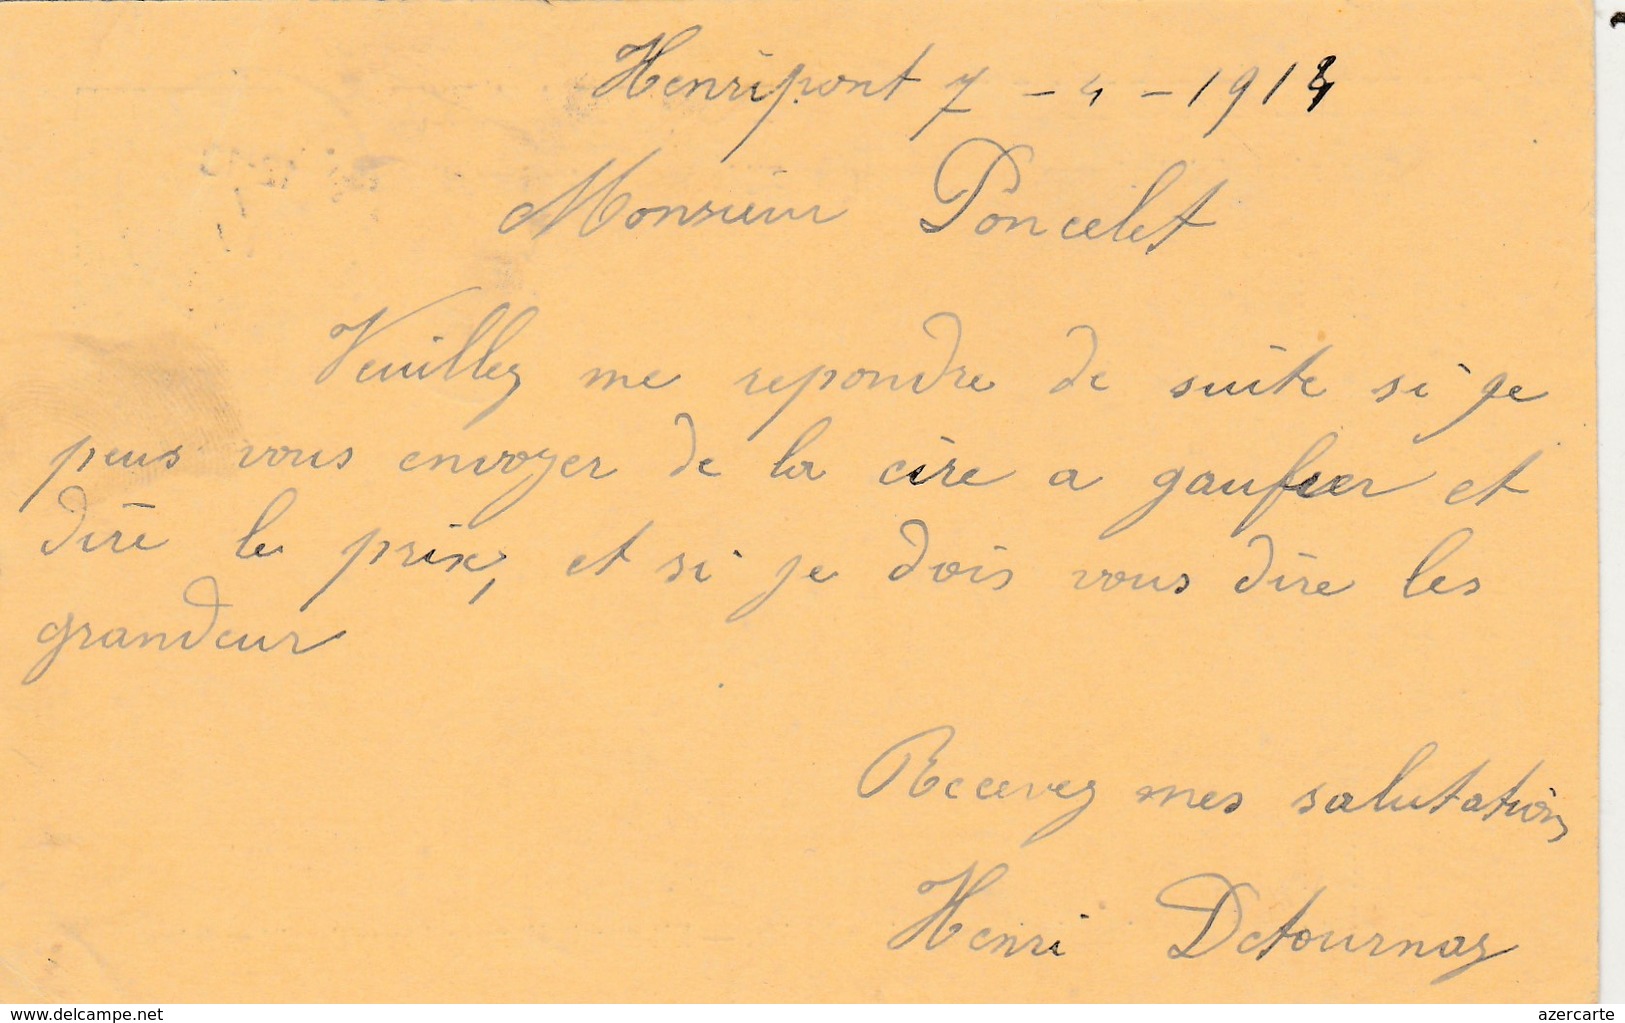 Henripont 7 - 4 - 1914
Monsieur Poncelet
Veuillez me repondre de suite si je
peus vous envoyer de la cire a gaufrer et
dire le prix, et si je dois vous dire les
grandeur
Recevez mes salutations
Henri Detournay
www.delcampe.net
azercarte